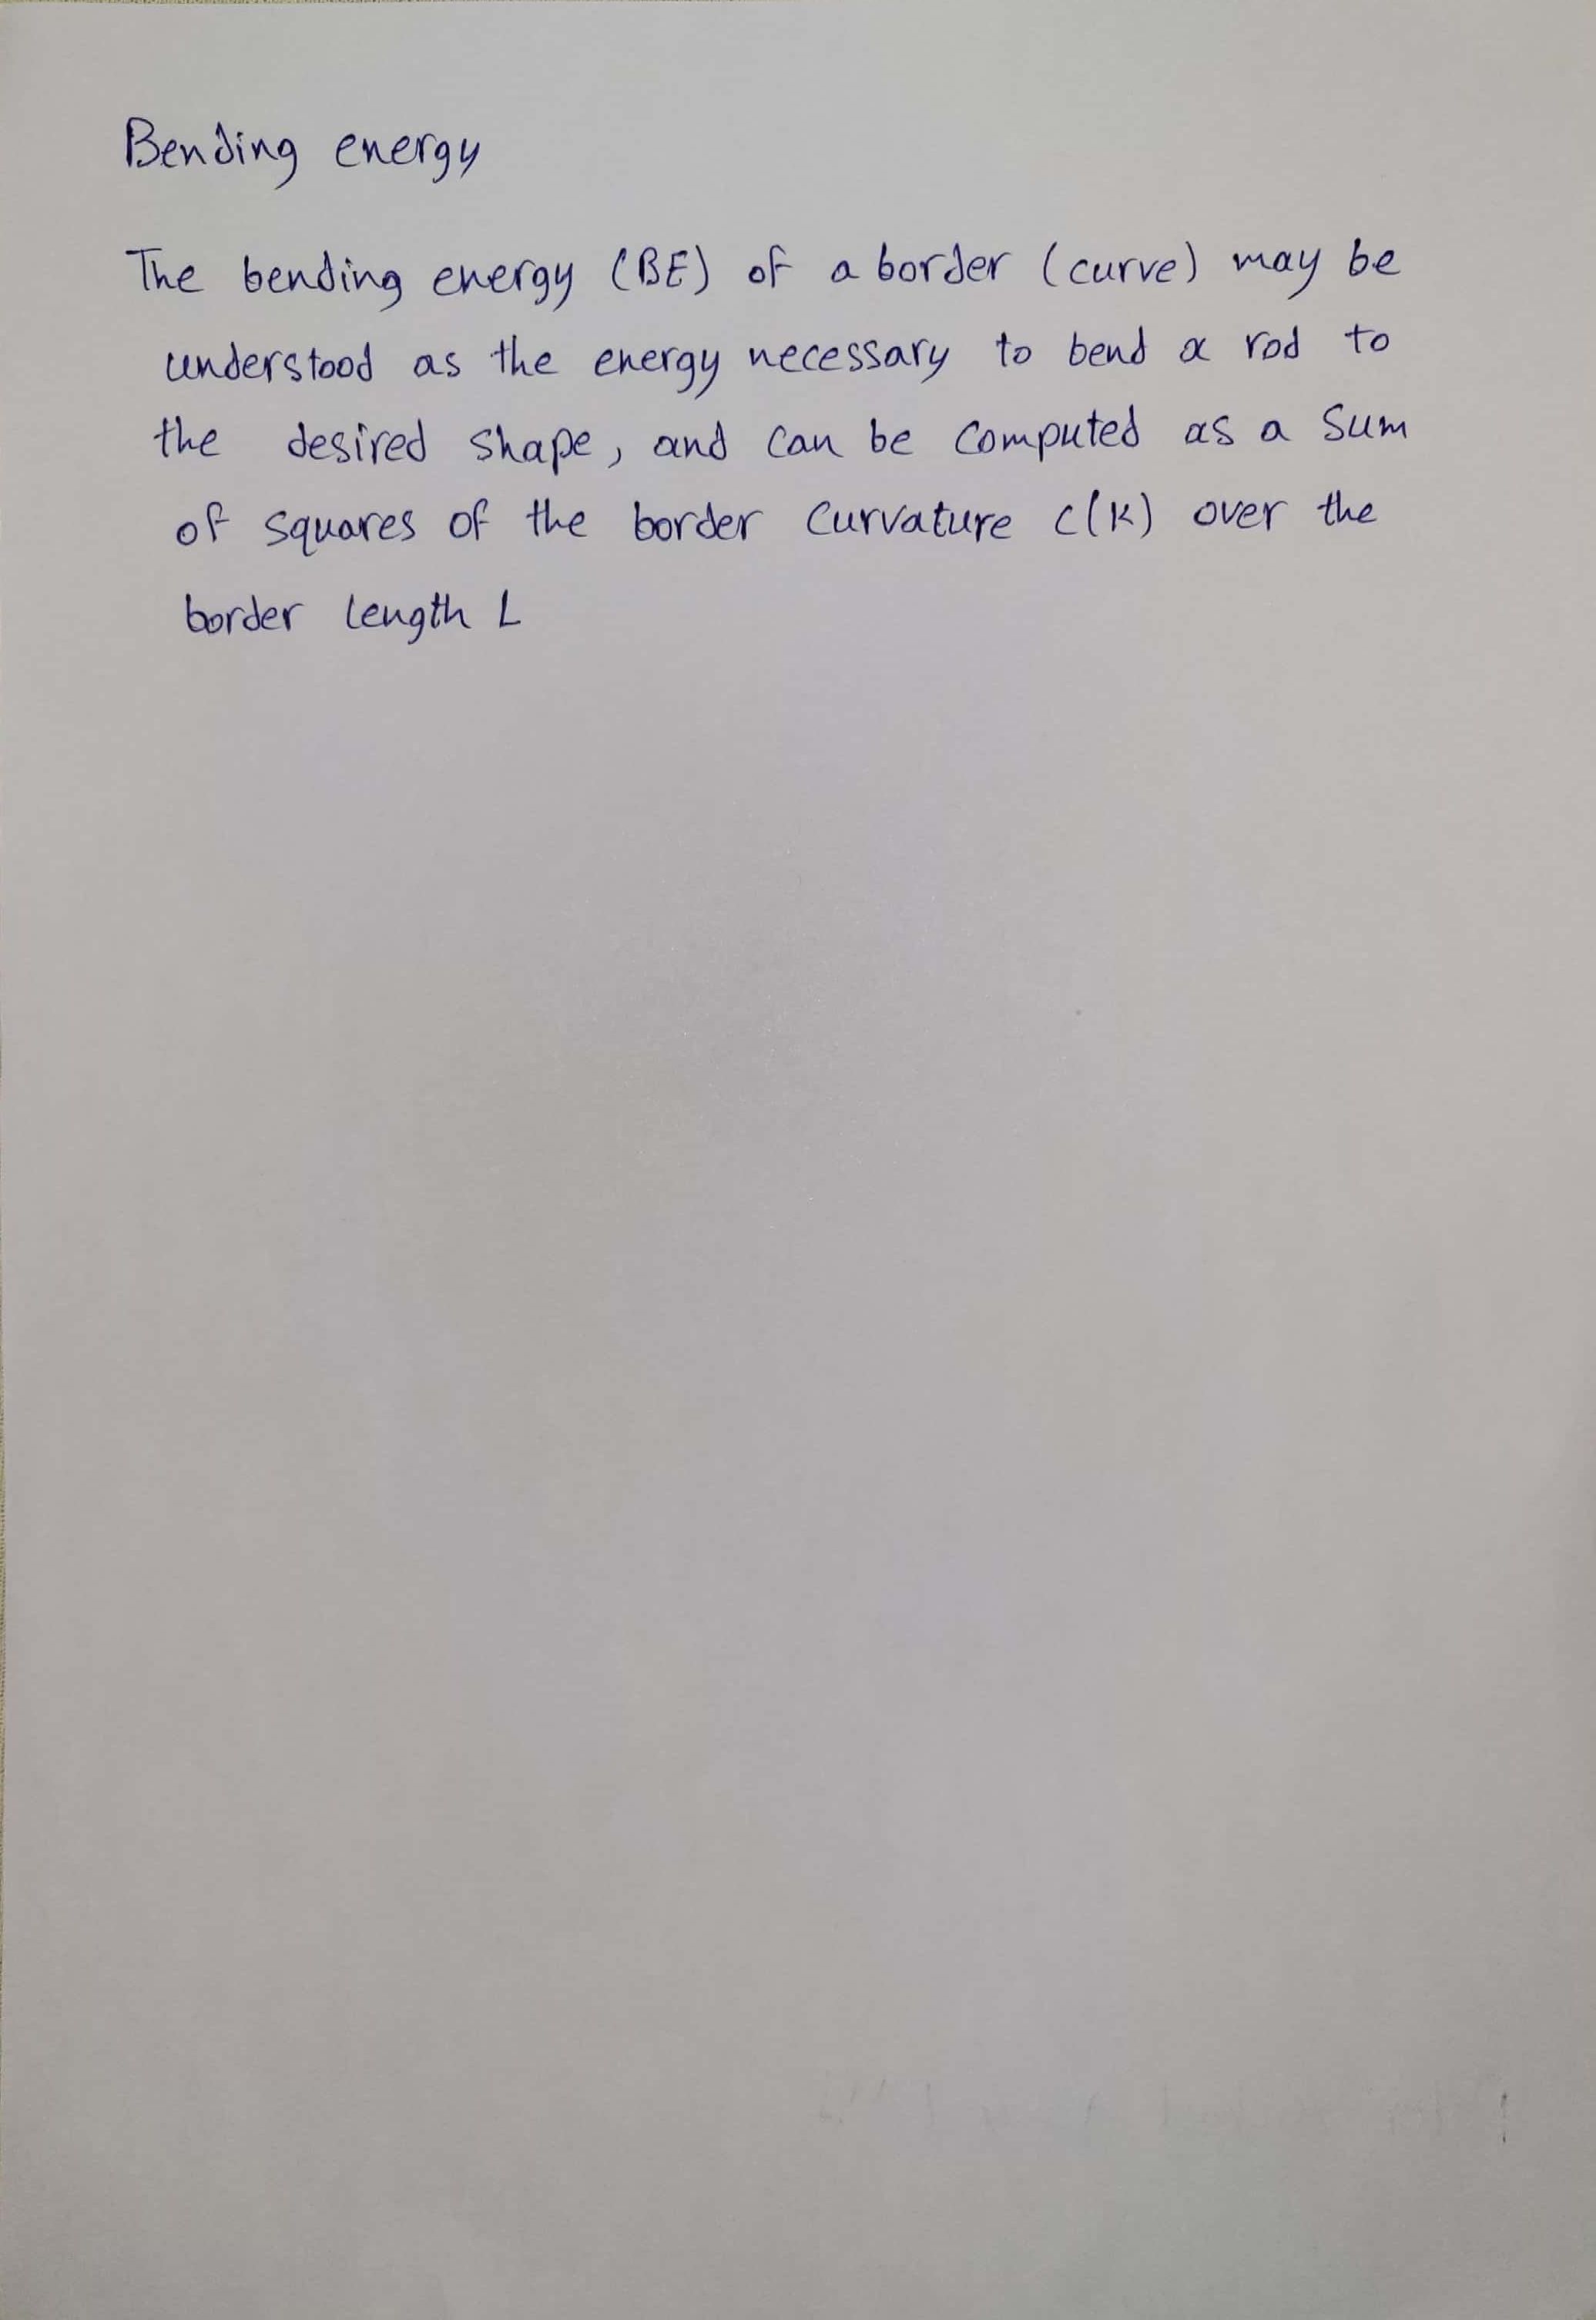 Bending energy
The bending energy (BE) of a border (curve) may be
understood as the energy necessary to bend a rod to
the desired shape, and can be computed as a sum
of squares of the border curvature c(k) over the
border length L